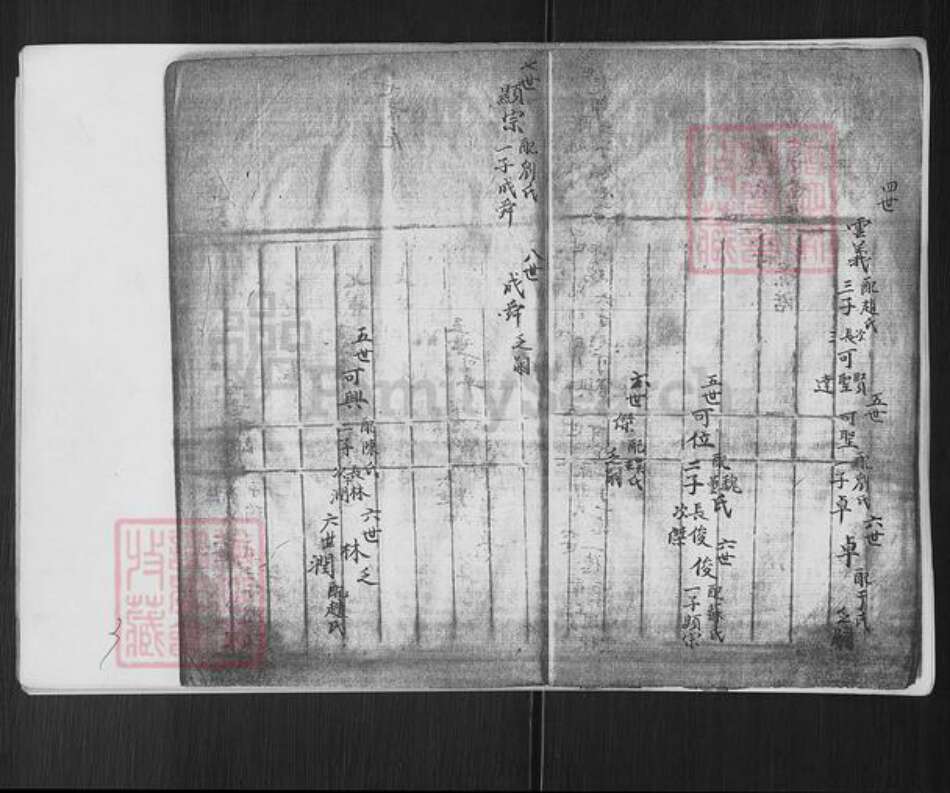 四世
雲義 配趙氏
三子 長可聖 次賢 三達
五世
可聖 配劉氏
一子卓
六世
卓 配于氏
乏嗣
五世
可位 配魏氏
二子 長俊 次傑
六世
俊 配蘇氏
一子顯宗
六世
傑 配
乏嗣
七世
顯宗 配劉氏
一子成舜
八世
成舜 乏嗣
五世
可興 配陳氏
二子 長林 次潤
六世
林 乏
六世
潤 配趙氏
FamilySearch